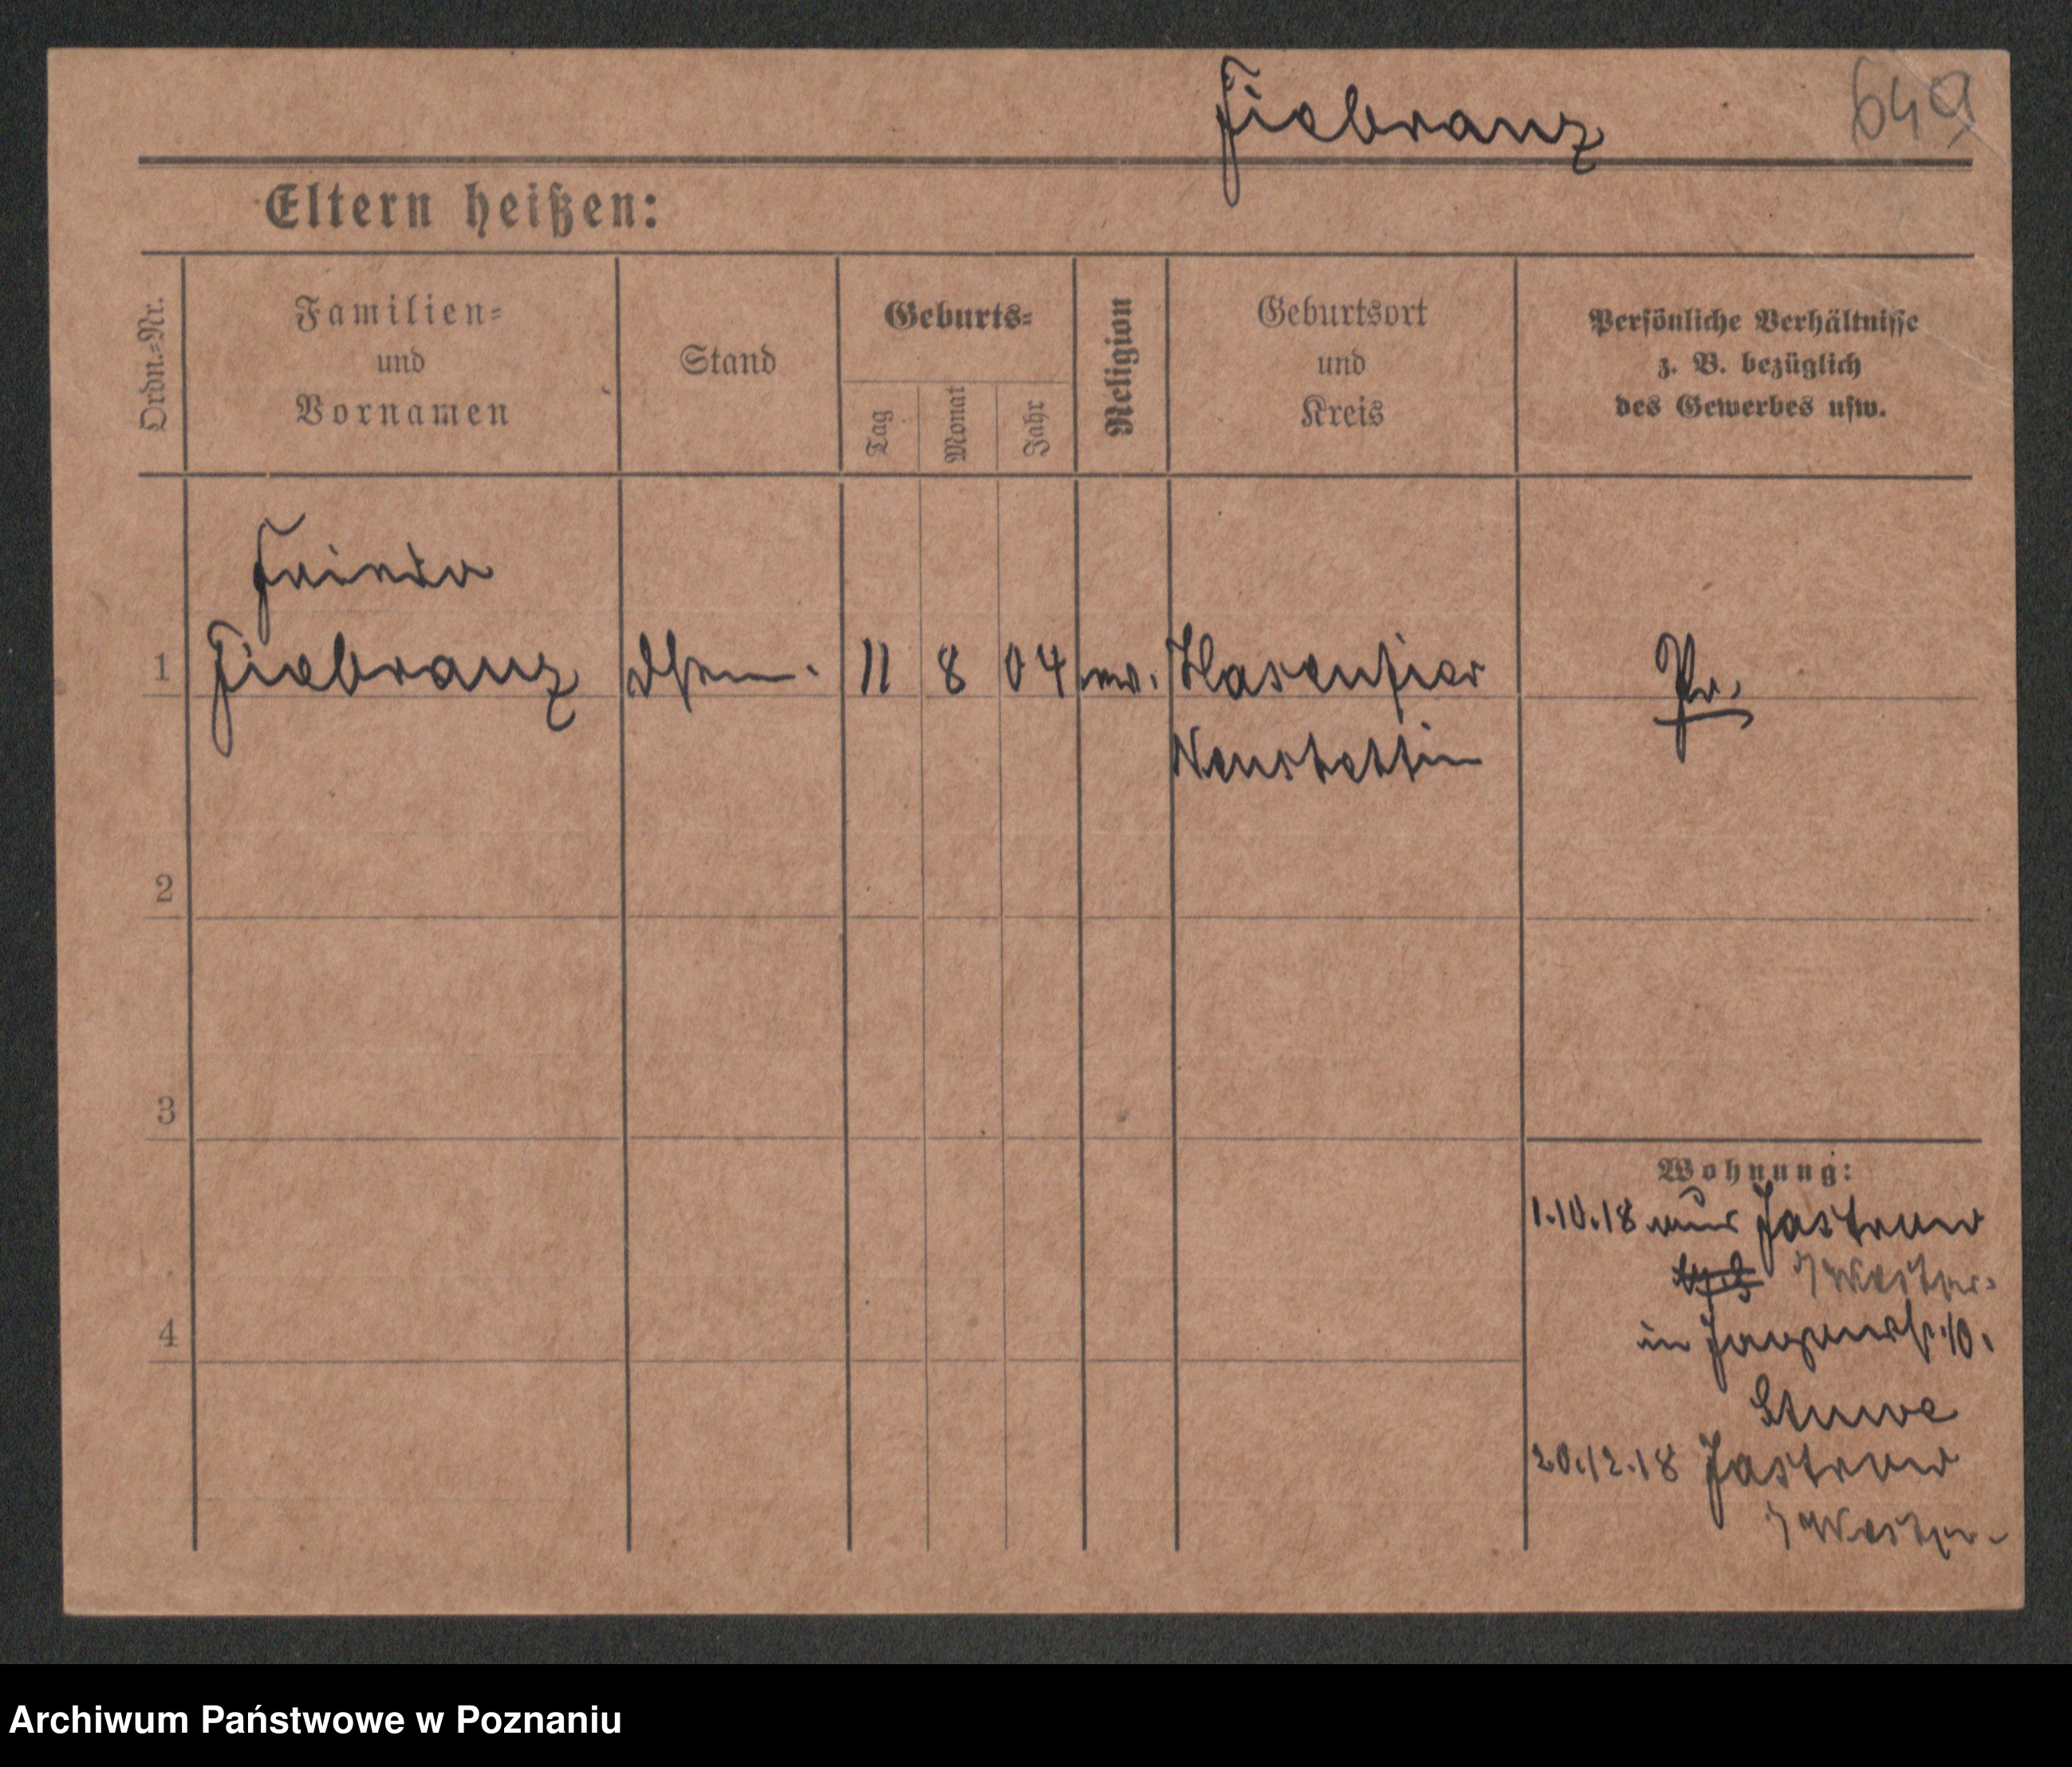 Fiebranz 649
Eltern heißen:
Ordn.=Nr.
Familien=
und
Vornamen
Stand
Geburts=
Tag
Monat
Jahr
Religion
Geburtsort
und
Kreis
Persönliche Verhältnisse
z. B. bezüglich
des Gewerbes usw.
Frieda
1 Fiebranz 11 8 04 ev. Hasenfier Pr.
Neustettin
2
3
4
Wohnung:
1.10.18 aus Jastrow
/Westpr.
in 10.
Stuwe
20.12.18 Jastrow
/Westpr.
Archiwum Państwowe w Poznaniu